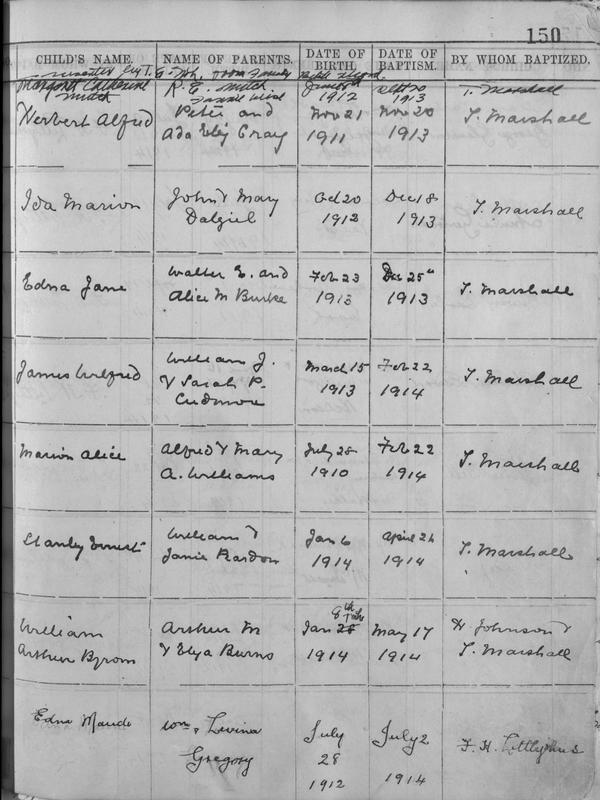 150
CHILD'S NAME. NAME OF PARENTS. DATE OF BIRTH. DATE OF BAPTISM. BY WHOM BAPTIZED.
Margaret Catherine R. E. 1912 Sept 20 1913 T. Marshall
Herbert Alfred Peter and Nov 21 Nov 20 T. Marshall
Ada Craig 1911 1913
Ida Marion John & Mary Oct 20 Dec 18 T. Marshall
Dalgiel 1912 1913
Edna Jane Walter E. and Feb 23 Dec 25th T. Marshall
Alice M Burke 1913 1913
James Wilfred William J. March 15 Feb 22 T. Marshall
& Sarah P. 1913 1914
Cudmore
Marion Alice Alfred & Mary July 28 Feb 22 T. Marshall
A. Williams 1910 1914
Stanley Ernest William & Jan 6 April 26 T. Marshall
Janie Reardon 1914 1914
8th
William Arthur M Jan May 17 H. Johnson &
Arthur Byrom & Burns 1914 1914 T. Marshall
Edna Maude Wm, Levina July July 2 F. H.
Gregory 28
1912 1914